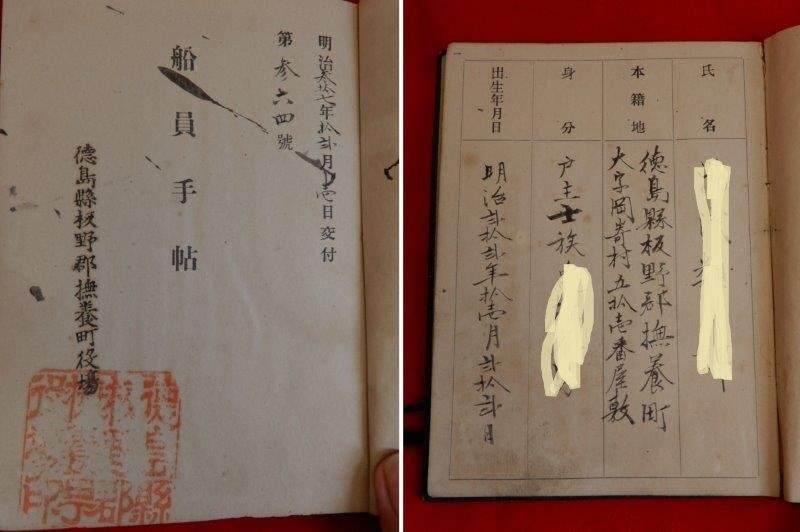 明治参拾七年拾弐月壱日交付
第参六四號
船員手帖
徳島縣板野郡撫養町役場
徳島縣
板野郡
撫養町
役場印
氏名
本籍地
徳島縣板野郡撫養町
大字岡嵜村五拾壱番屋敷
身分
戸主士族
出生年月日
明治弐拾弐年拾壱月弐拾弐日